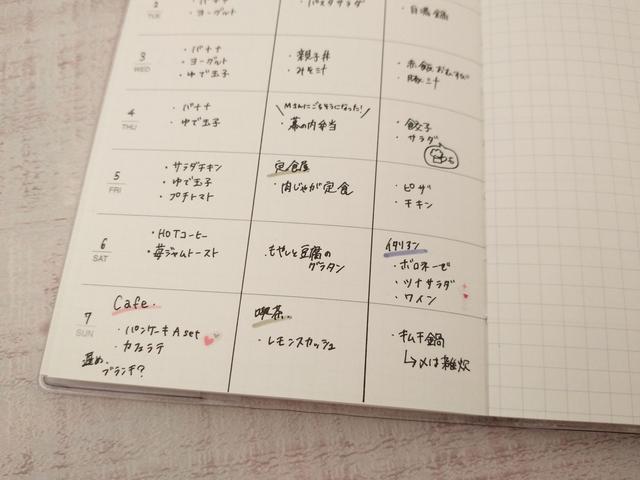 2
TUE
・バナナ
・ヨーグルト
・パスタサラダ
・白湯鍋
3
WED
・バナナ
・ヨーグルト
・ゆで玉子
・親子丼
・みそ汁
・赤飯おむすび
・豚汁
4
THU
・バナナ
・ゆで玉子
\Mさんにごちそうになった!/
・幕の内弁当
・餃子
・サラダ
5
FRI
・サラダチキン
・ゆで玉子
・プチトマト
定食屋
・肉じゃが定食
・ピザ
・チキン
6
SAT
・HOTコーヒー
・苺ジャムトースト
・もやしと豆腐の
グラタン
イタリアン
・ボロネーゼ
・ツナサラダ
・ワイン
7
SUN
Cafe.
・パンケーキAset
・カフェラテ
遅め、
ブランチ?
喫茶.
・レモンスカッシュ
・キムチ鍋
↳〆は雑炊